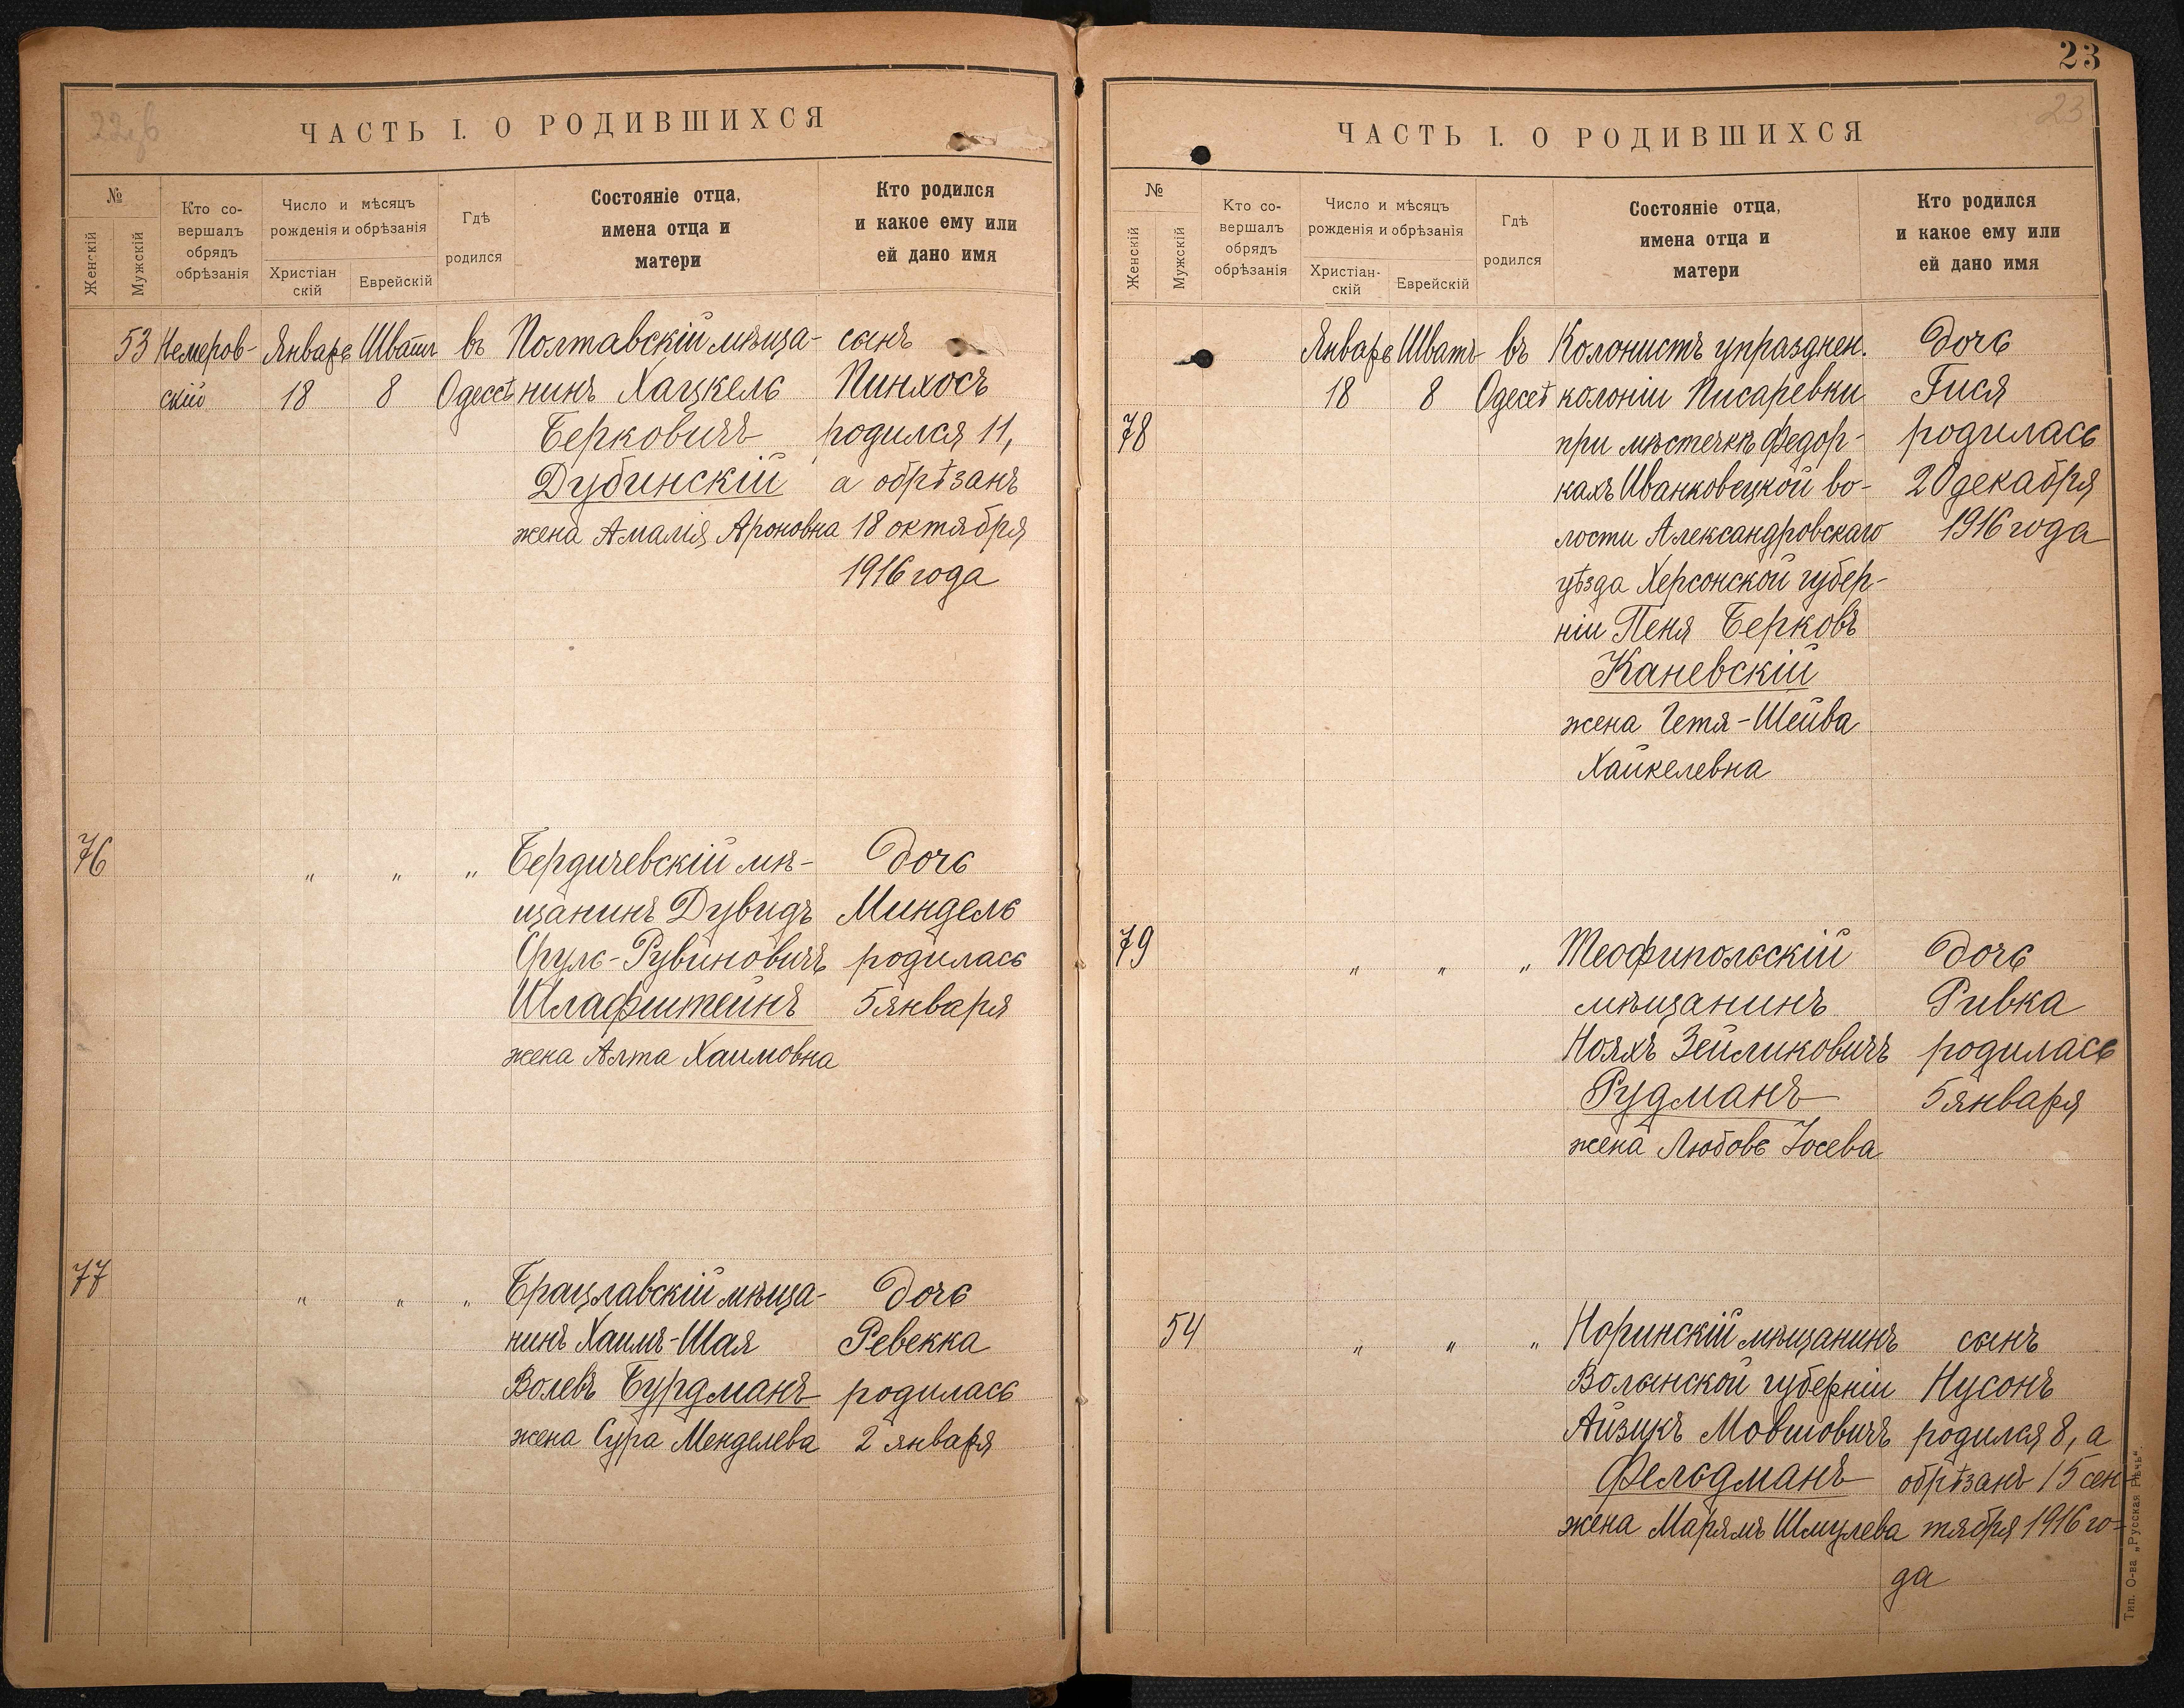 22об
ЧАСТЬ I. О РОДИВШИХСЯ
№
Женскій
Мужскій
Кто со-
вершалъ
обрядъ
обрѣзанія
Число и мѣсяцъ
рожденія и обрѣзанія
Христіан
скій
Еврейскій
Гдѣ
родился
Состояніе отца,
имена отца и
матери
Кто родился
и какое ему или
ей дано имя
53 Немеров- Январь Шватъ въ Полтавскій мѣща- сынъ
скій 18 8 Одессѣ нинъ Хацкель Пинхосъ
Берковичъ родился 11,
Дубинскій а обрѣзанъ
жена Амалія Ароновна 18 октября
1916 года
76 „ „ „ Бердичевскій мѣ- Дочь
щанинъ Дувидъ Миндель
Сруль-Рувиновичъ родилась
Шлафштейнъ 5 января
жена Алта Хаимовна
77 „ „ „ Брацлавскій мѣща- Дочь
нинъ Хаимъ-Шая Ревекка
Волевъ Бурдманъ родилась
жена Сура Менделева 2 января
23
23
ЧАСТЬ I. О РОДИВШИХСЯ
№
Женскій
Мужскій
Кто со-
вершалъ
обрядъ
обрѣзанія
Число и мѣсяцъ
рожденія и обрѣзанія
Христіан-
скій
Еврейскій
Гдѣ
родился
Состояніе отца,
имена отца и
матери
Кто родился
и какое ему или
ей дано имя
Январь Шватъ въ Колонистъ упразднен. Дочь
18 8 Одессѣ колоніи Писаревки Гися
78 при мѣстечкѣ Федор- родилась
кахъ Иванковецкой во- 20 декабря
лости Александровскаго 1916 года
уѣзда Херсонской губер-
ніи Пеня Берковъ
Каневскій
жена Гетя-Шейва
Хайкелевна
79 „ „ „ Теофипольскій Дочь
мѣщанинъ Ривка
Нояхъ Зейликовичъ родилась
Рудманъ 5 января
жена Любовь Іосева
54 „ „ „ Норинскій мѣщанинъ сынъ
Волынской губерніи Нусонъ
Айзикъ Мовшовичъ родился 8, а
Фельдманъ обрѣзанъ 15 сен-
жена Марямъ Шмулева тября 1916 го-
да
Тип. О-ва „Русская Рѣчь“.